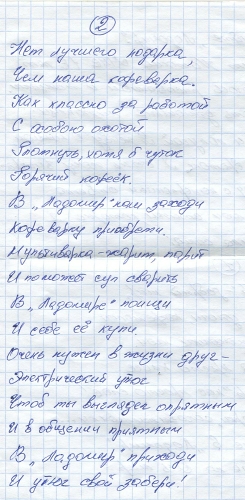 2
Нет лучшего подарка,
Чем наша кофеварка.
Как классно за работой
С особою охотой
Глотнуть, хотя б чуток
Горячий кофеёк.
В „Ладомир" к нам заходи
Кофеварку приобрети.
Мультиварка-жарит, парит
И поможет суп сварить
В „Ладомире" поищи
И себе её купи
Очень нужен в жизни друг-
Электрический утюг
Чтоб ты выглядел опрятным
И в общении приятным
В „Ладомир" приходи
И утюг свой забери!